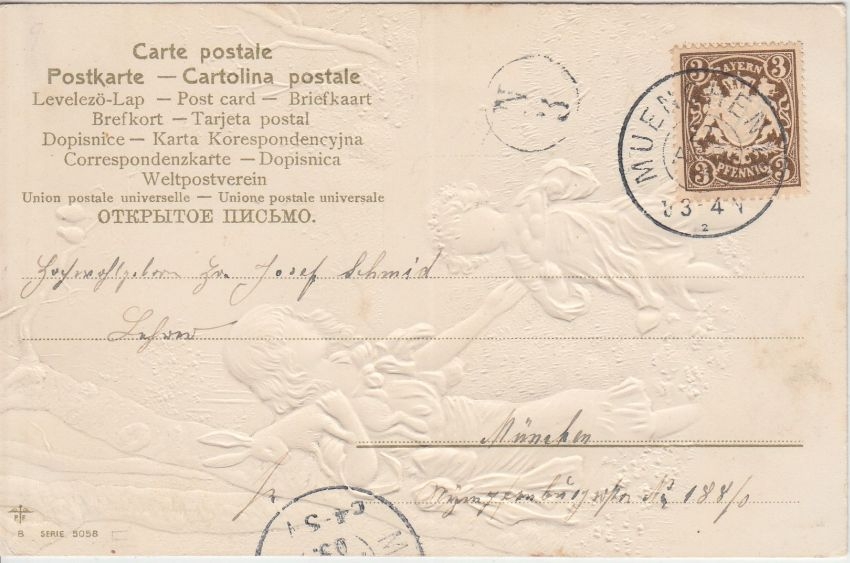 Carte postale
Postkarte — Cartolina postale
Levelezö-Lap — Post card — Briefkaart
Brefkort — Tarjeta postal
Dopisnice — Karta Korespondencyjna
Correspondenzkarte — Dopisnica
Weltpostverein
Union postale universelle — Unione postale universale
ОТКРЫТОЕ ПИСЬМО.
N 3
3 3
BAYERN
3 PFENNIG 3
MUENCHEN
3-4 N
2
Hochwohlgeboren Hr. Josef Schmid
Lehrer
München
Nymphenburgerstr. No 188/0
8 SERIE 5058
4-5
03.
M